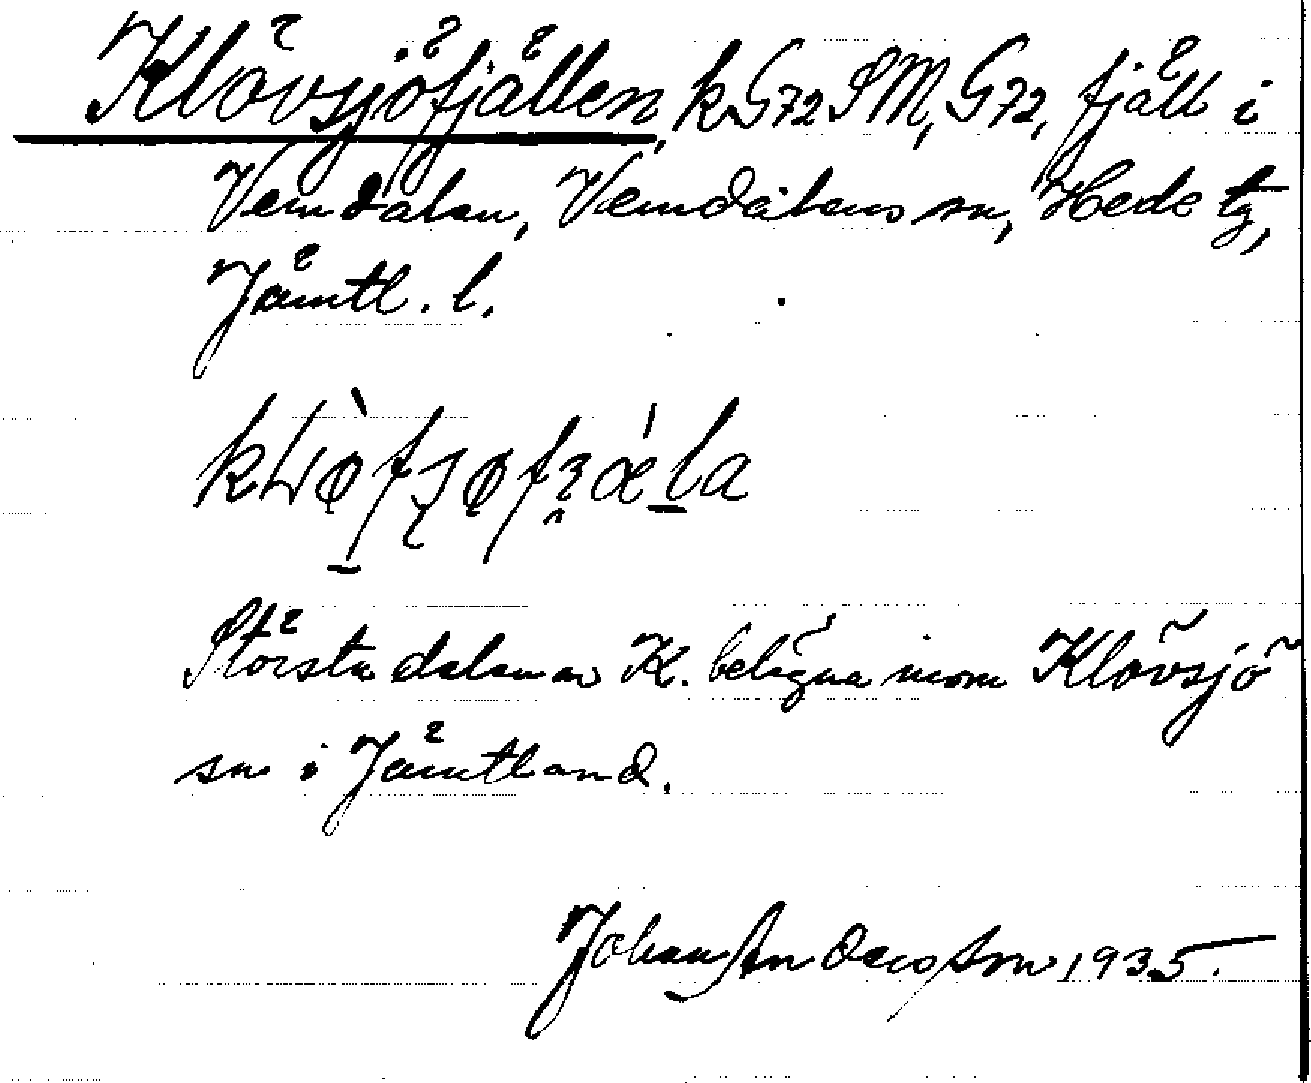 Klövsjöfjällen, kG72SM, G72, fjäll i
Vemdalen, Vemdalens sn, Hede tg,
Jämtl. l.
Största delen av K. belägna inom Klövsjö
sn i Jämtland.
Johan Andersson 1935.